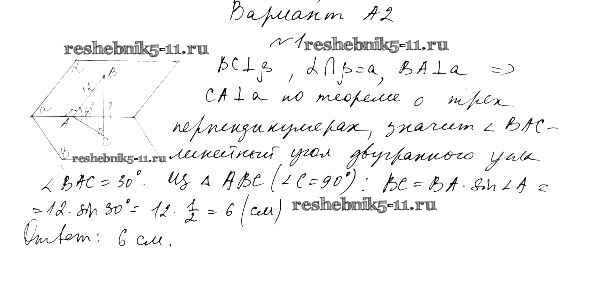 Вариант А2
№1
reshebnik5-11.ru reshebnik5-11.ru
BC⊥β, α∩β=a, BA⊥a ⇒
CA⊥a по теореме о трех
перпендикулярах, значит ∠BAC-
reshebnik5-11.ru линейный угол двугранного угла
∠BAC=30°. Из △ABC (∠C=90°): BC=BA·sin∠A=
=12·sin 30°=12·1/2=6 (см) reshebnik5-11.ru
Ответ: 6 см.